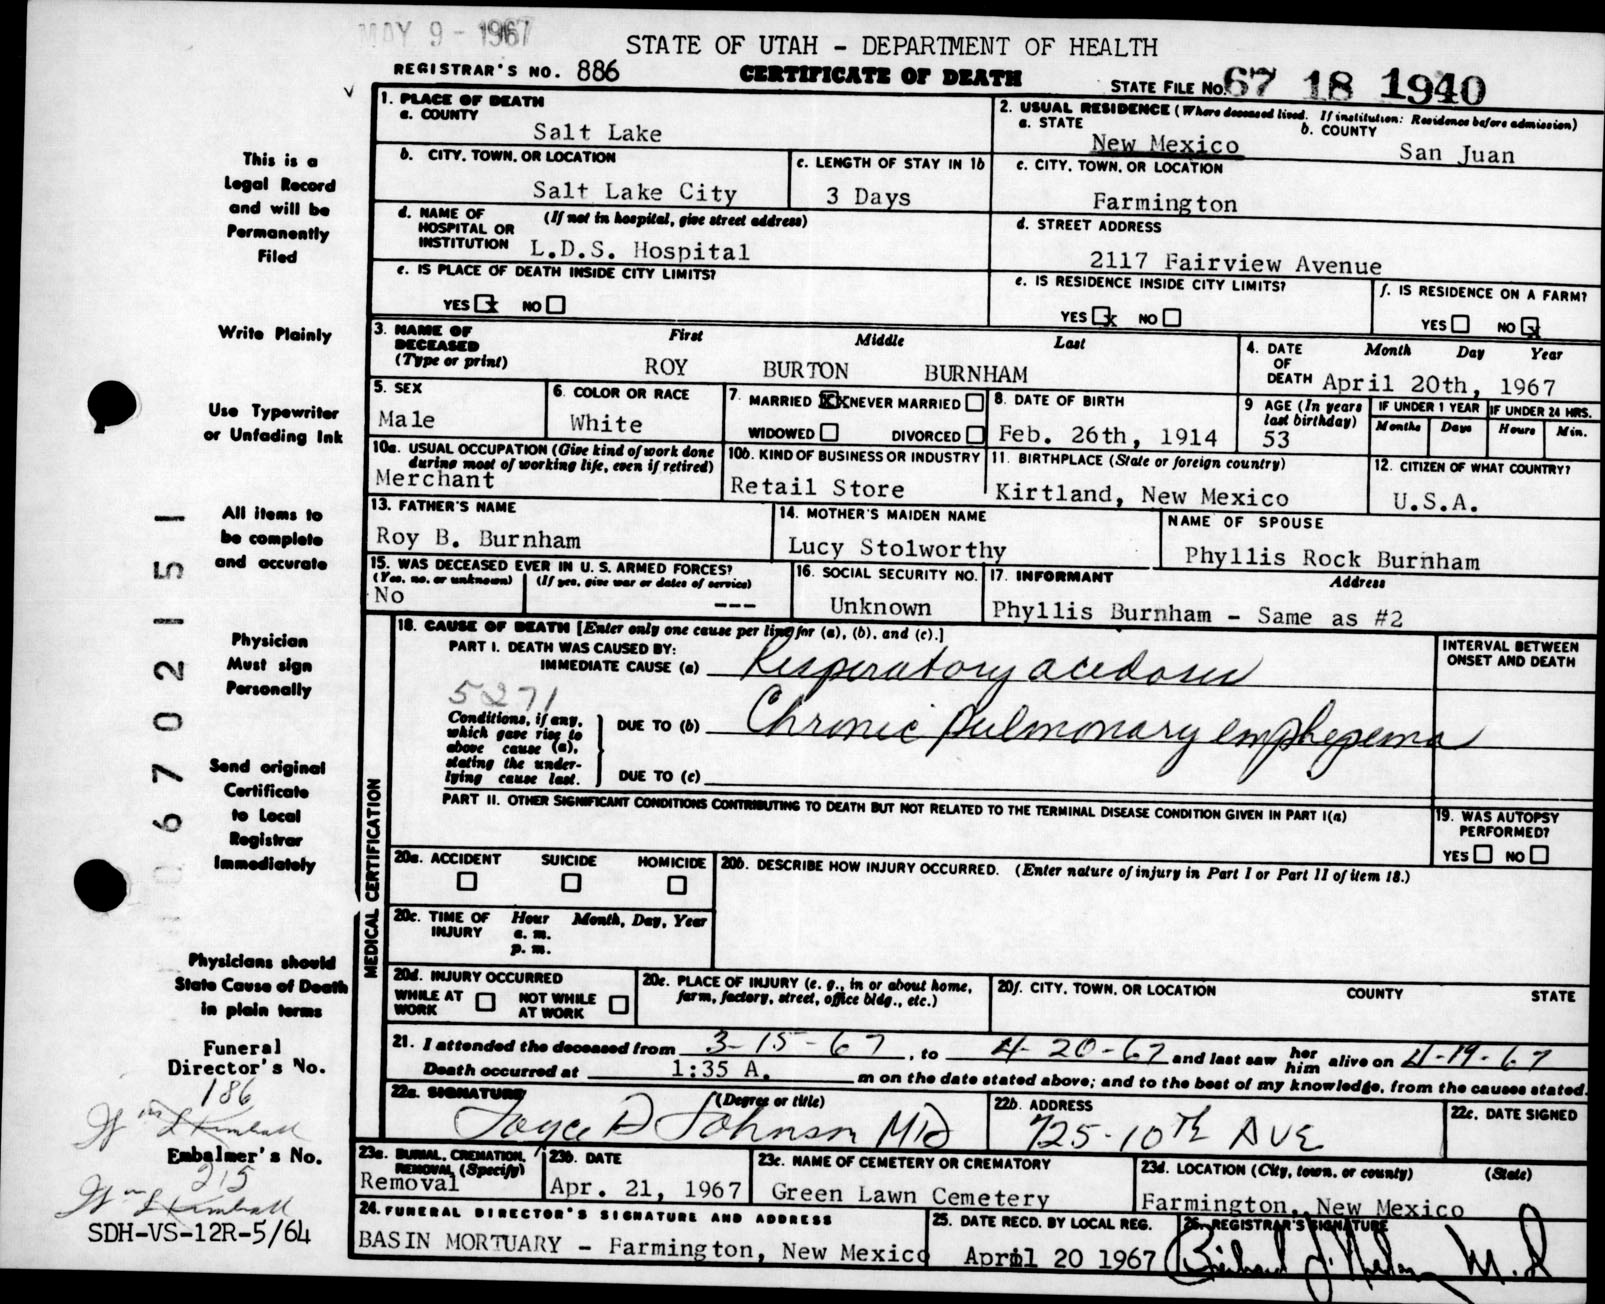 MAY 9 - 1967
STATE OF UTAH - DEPARTMENT OF HEALTH
REGISTRAR'S NO. 886
CERTIFICATE OF DEATH
STATE FILE No. 67 18 1940
This is a
Legal Record
and will be
Permanently
Filed
Write Plainly
Use Typewriter
or Unfading Ink
All items to
be complete
and accurate
Physician
Must sign
Personally
Send original
Certificate
to Local
Registrar
Immediately
Physicians should
State Cause of Death
in plain terms
Funeral
Director's No.
186
Wm L Kimball
Embalmer's No.
215
Wm L Kimball
SDH-VS-12R-5/64
06702151
1. PLACE OF DEATH
a. COUNTY
Salt Lake
b. CITY, TOWN, OR LOCATION
Salt Lake City
c. LENGTH OF STAY IN 1b
3 Days
d. NAME OF HOSPITAL OR INSTITUTION
(If not in hospital, give street address)
L.D.S. Hospital
e. IS PLACE OF DEATH INSIDE CITY LIMITS?
YES x NO
2. USUAL RESIDENCE (Where deceased lived. If institution: Residence before admission)
a. STATE
New Mexico
b. COUNTY
San Juan
c. CITY, TOWN, OR LOCATION
Farmington
d. STREET ADDRESS
2117 Fairview Avenue
e. IS RESIDENCE INSIDE CITY LIMITS?
YES x NO
f. IS RESIDENCE ON A FARM?
YES NO x
3. NAME OF DECEASED
(Type or print)
First Middle Last
ROY BURTON BURNHAM
4. DATE OF DEATH
Month Day Year
April 20th, 1967
5. SEX
Male
6. COLOR OR RACE
White
7. MARRIED XX NEVER MARRIED
WIDOWED DIVORCED
8. DATE OF BIRTH
Feb. 26th, 1914
9 AGE (In years last birthday)
53
IF UNDER 1 YEAR
Months Days
IF UNDER 24 HRS.
Hours Min.
10a. USUAL OCCUPATION (Give kind of work done
during most of working life, even if retired)
Merchant
10b. KIND OF BUSINESS OR INDUSTRY
Retail Store
11. BIRTHPLACE (State or foreign country)
Kirtland, New Mexico
12. CITIZEN OF WHAT COUNTRY?
U.S.A.
13. FATHER'S NAME
Roy B. Burnham
14. MOTHER'S MAIDEN NAME
Lucy Stolworthy
NAME OF SPOUSE
Phyllis Rock Burnham
15. WAS DECEASED EVER IN U. S. ARMED FORCES?
(Yes, no, or unknown) (If yes, give war or dates of service)
No ---
16. SOCIAL SECURITY NO.
Unknown
17. INFORMANT Address
Phyllis Burnham - Same as #2
MEDICAL CERTIFICATION
18. CAUSE OF DEATH [Enter only one cause per line for (a), (b), and (c).]
INTERVAL BETWEEN
ONSET AND DEATH
PART I. DEATH WAS CAUSED BY:
IMMEDIATE CAUSE (a) Respiratory acedosis
5271
Conditions, if any,
which gave rise to
above cause (a),
stating the under-
lying cause last.
DUE TO (b) Chronic pulmonary emphyema
DUE TO (c)
PART II. OTHER SIGNIFICANT CONDITIONS CONTRIBUTING TO DEATH BUT NOT RELATED TO THE TERMINAL DISEASE CONDITION GIVEN IN PART I(a)
19. WAS AUTOPSY
PERFORMED?
YES NO
20a. ACCIDENT SUICIDE HOMICIDE
20b. DESCRIBE HOW INJURY OCCURRED. (Enter nature of injury in Part I or Part II of item 18.)
20c. TIME OF INJURY
Hour Month, Day, Year
a. m.
p. m.
20d. INJURY OCCURRED
WHILE AT WORK NOT WHILE AT WORK
20e. PLACE OF INJURY (e. g., in or about home,
farm, factory, street, office bldg., etc.)
20f. CITY, TOWN, OR LOCATION COUNTY STATE
21. I attended the deceased from 3-15-67, to 4-20-67 and last saw her him alive on 4-19-67
Death occurred at 1:35 A. m on the date stated above; and to the best of my knowledge, from the causes stated.
22a. SIGNATURE (Degree or title)
Joyce D Johnson MD
22b. ADDRESS
725-10th AVE
22c. DATE SIGNED
23a. BURIAL, CREMATION,
REMOVAL (Specify)
Removal
23b. DATE
Apr. 21, 1967
23c. NAME OF CEMETERY OR CREMATORY
Green Lawn Cemetery
23d. LOCATION (City, town, or county) (State)
Farmington, New Mexico
24. FUNERAL DIRECTOR'S SIGNATURE AND ADDRESS
BASIN MORTUARY - Farmington, New Mexico
25. DATE RECD. BY LOCAL REG.
April 20 1967
26. REGISTRAR'S SIGNATURE